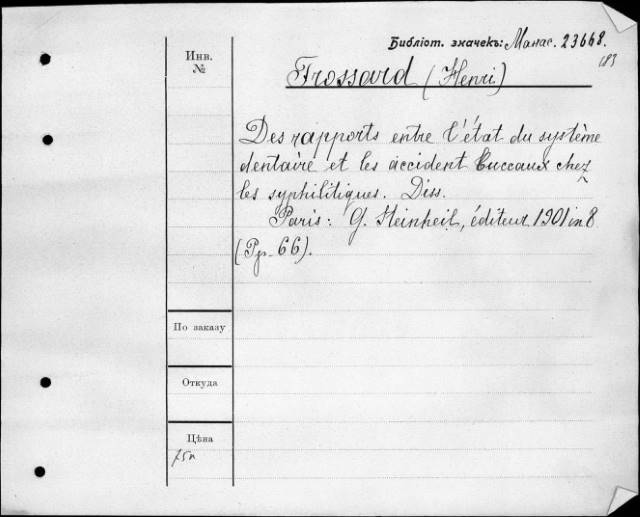 Библіот. значекъ: Манас. 23668.
183
Инв. №
Frossard (Henri)
Des rapports entre l'état du système
dentaire et les accident buccaux chez
les syphilitiques. Diss.
Paris: G. Steinheil, éditeur 1901 in 8
(Pp. 66).
По заказу
Откуда
Цѣна
75к